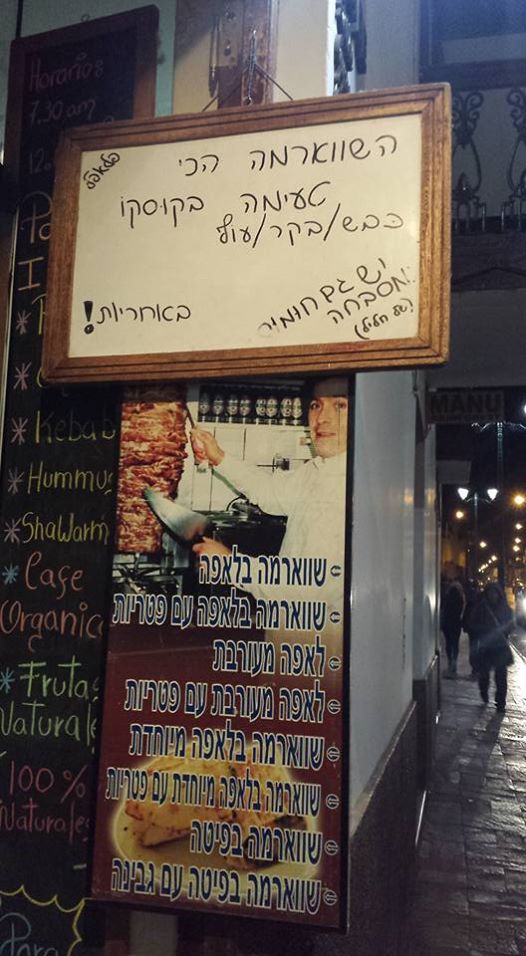 Horario:
7.30 am
פלאפל
השווארמה הכי
טעימה בקוסקו
כבש/בקר/עוף
יש גם חומוס
מסבחה
באחריות!
* Kebab
* Hummus
* Shawarm
* Cafe
Organico
* Frutas
Naturale
100%
Naturales
Para
MANU
שווארמה בלאפה
שווארמה בלאפה עם פטריות
לאפה מעורבת
לאפה מעורבת עם פטריות
שווארמה בלאפה מיוחדת
שווארמה בלאפה מיוחדת עם פטריות
שווארמה בפיטה
שווארמה בפיטה עם גבינה